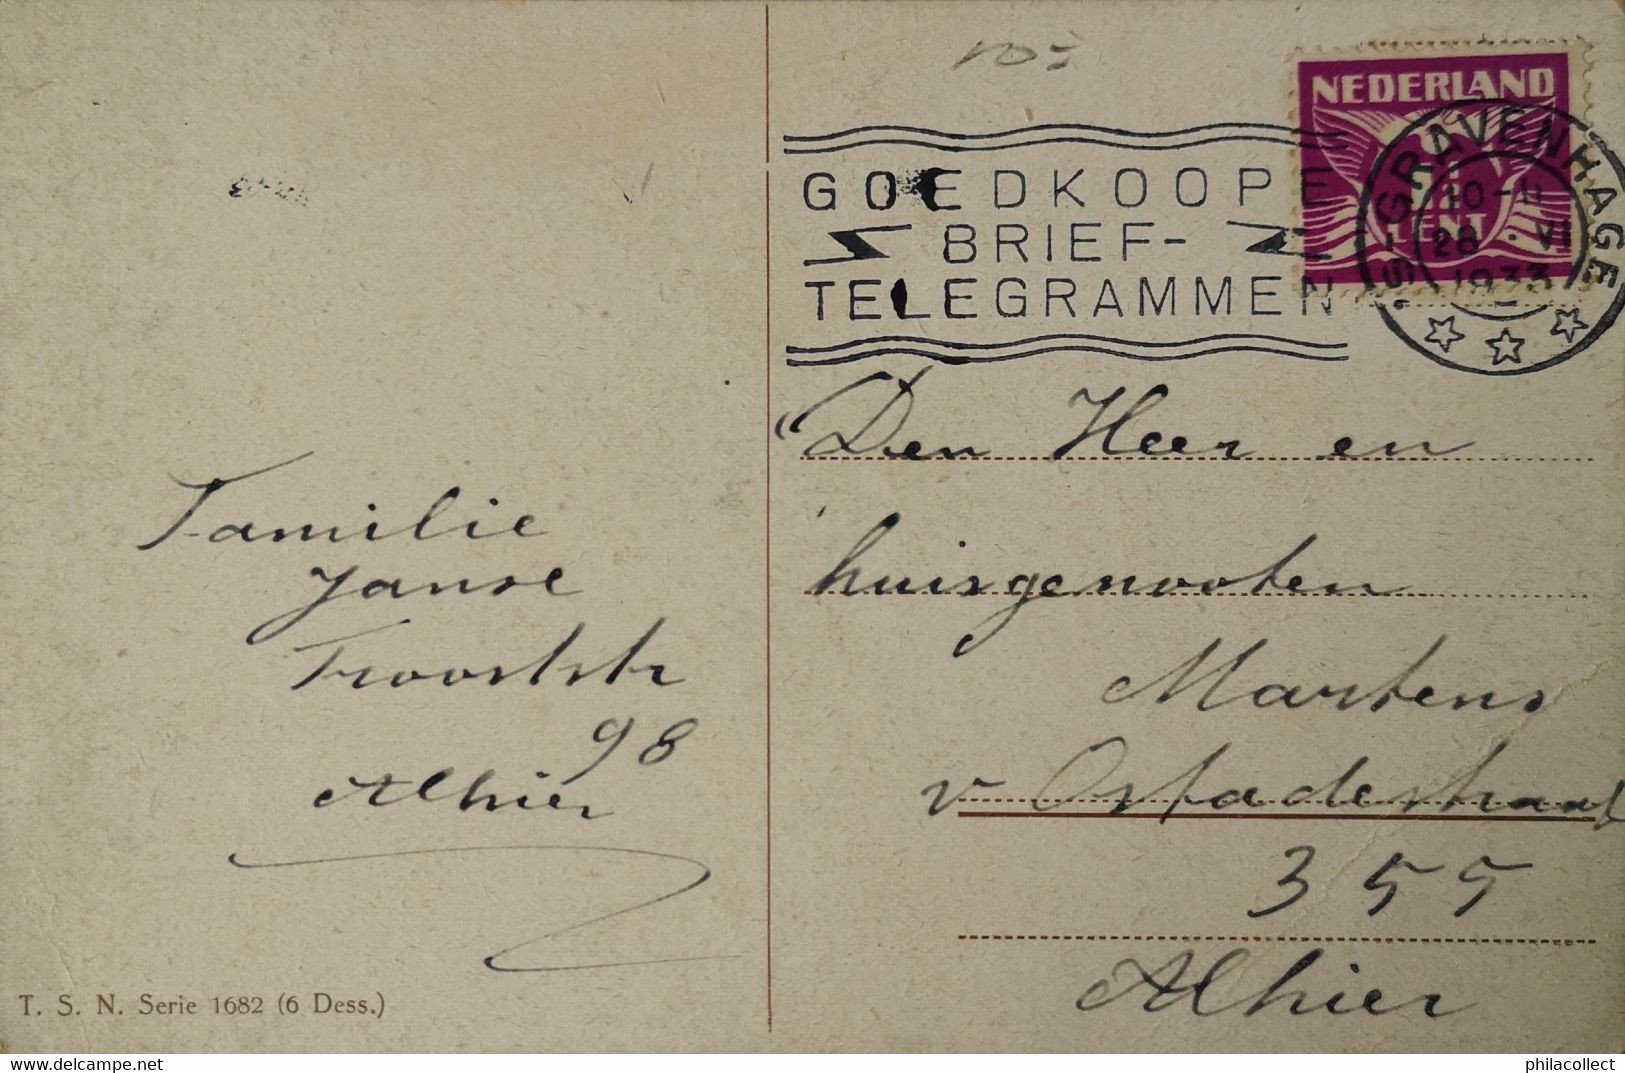 10=
NEDERLAND
CENT
'S-GRAVENHAGE
10-11
28 . VI
1933
GOEDKOOPE
BRIEF-
TELEGRAMMEN
Den Heer en
huisgenooten
Martens
v Ostadestraat
355
Alhier
Familie
Janse
Trooststr
98
Alhier
T. S. N. Serie 1682 (6 Dess.)
www.delcampe.net
philacollect